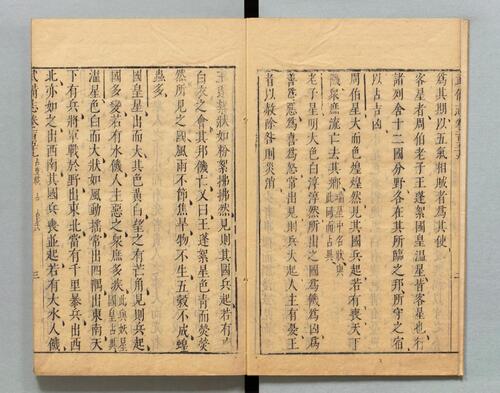 爲其期以五氣相賊者爲其使
客星者周伯老子王蓬絮國皇温星皆客星也行
諸列舍十二國分野各在其所臨之邦所守之宿
以占吉凶
周伯星大而色煌煌然見其國兵起若有喪天下
饑衆庶流亡去其鄉瑞星中名狀與此同而占異
老子星明大色白淳淳然所出之國爲饑爲凶爲
善爲惡爲喜爲怒常出見則兵大起人主有憂王
者以赦除咎則災消
王蓬絮狀如粉絮拂拂然見則其國兵起若有
白衣之會其邦饑亡又曰王蓬絮星色青而熒熒
然所見之國風雨不節焦旱物不生五穀不成蝗
蟲多
國皇星出而大其色黄白望之有芒角見則兵起
國多變若有水饑人主惡之衆庶多疾此與妖星國皇占異
温星色白而大狀如風動搖常出四隅出東南天
下有兵將軍戰於野出東北當有千里暴兵出西
北亦如之出西南其國兵喪並起若有大水人饑
武備志卷
三